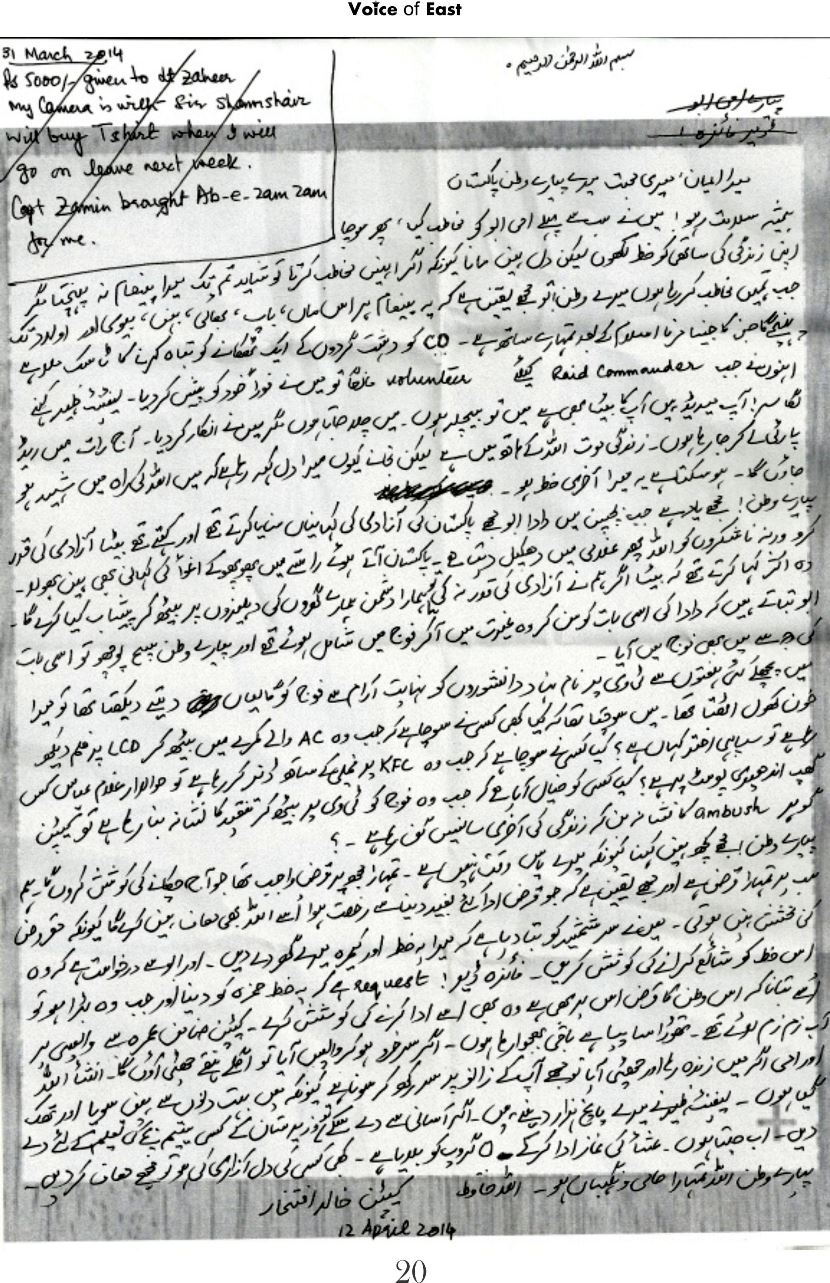 Voice of East
31 March 2014
Rs 5000/- given to Lt Zaheer
My Camera is with Sir Shamshair
Will buy Tshirt when I will
go on leave next week.
Capt Zamin brought Ab-e-zam zam
for me.
بسم اللہ الرحمن الرحیم
پیارے امی ابو
فائزہ !
میرا ایمان، میری محبت میرے پیارے وطن پاکستان
ہمیشہ سلامت رہو! میں نے سب سے پہلے امی ابو کو مخاطب کیا، پھر سوچا
اپنی زندگی کی ساتھی کو خط لکھوں لیکن دل نہیں مانا کیونکہ اگر انہیں مخاطب کرتا تو شاید تم تک میرا پیغام نہ پہنچتا مگر
جب تمہیں مخاطب کر رہا ہوں میرے وطن، تو مجھے یقین ہے کہ یہ پیغام ہر اس ماں، باپ، بھائی، بہن، بیوی اور اولاد تک
پہنچے گا جن کا جینا مرنا اسلام کے بعد تمہارے ساتھ ہے۔ CO کو دہشت گردوں کے ایک ٹھکانے کو تباہ کرنے کا ٹاسک ملا ہے
انہوں نے جب Raid Commander کیلئے volunteer مانگا تو میں نے فوراً خود کو پیش کر دیا۔ لیفٹیننٹ ظہیر کہنے
لگا سر! آپ میریڈ ہیں آپ کا بیٹا بھی ہے میں تو بیچلر ہوں۔ میں چلا جاتا ہوں مگر میں نے انکار کر دیا۔ آج رات میں ریڈ
پارٹی لے کر جا رہا ہوں۔ زندگی موت اللہ کے ہاتھ میں ہے لیکن جانے کیوں میرا دل کہہ رہا ہے کہ میں اللہ کی راہ میں شہید ہو
جاؤں گا۔ ہو سکتا ہے یہ میرا آخری خط ہو۔
پیارے وطن! مجھے یاد ہے جب بچپن میں دادا ابو مجھے پاکستان کی آزادی کی کہانیاں سنایا کرتے تھے اور کہتے تھے بیٹا آزادی کی قدر
کرو ورنہ ناشکروں کو اللہ پھر غلامی میں دھکیل دیتا ہے۔ پاکستان آتے ہوئے راستے میں پھوپھو کے اغوا کی کہانی بھی نہیں بھولا۔
وہ اکثر کہا کرتے تھے کہ بیٹا اگر ہم نے آزادی کی قدر نہ کی تو ہمارا دشمن ہمارے گھروں کی دہلیزوں پر بیٹھ کر پیشاب کیا کرے گا۔
ابو بتاتے ہیں کہ دادا کی اسی بات کو سن کر وہ غیرت میں آ کر فوج میں شامل ہوئے تھے اور پیارے وطن سچ پوچھو تو اسی بات
کی وجہ سے میں بھی فوج میں آیا۔
میں پچھلے کئی ہفتوں سے ٹی وی پر نام نہاد دانشوروں کو نہایت آرام سے فوج کو گالیاں دیتے دیکھتا تھا تو میرا
خون کھول اٹھتا تھا۔ میں سوچتا تھا کہ کیا کبھی کسی نے سوچا ہے کہ جب وہ AC والے کمرے میں بیٹھ کر LCD پر فلم دیکھ
رہا ہے تو سپاہی اختر کہاں ہے؟ کیا کسی نے سوچا ہے کہ جب وہ KFC پر فیملی کے ساتھ ڈنر کر رہا ہے تو حوالدار غلام عباس کس
گھپ اندھیری پوسٹ پر ہے؟ کیا کسی کو خیال آیا ہے کہ جب وہ فوج کو ٹی وی پر بیٹھ کر تنقید کا نشانہ بنا رہا ہے تو کیپٹن
گوہر ambush کا نشانہ بن کر زندگی کی آخری سانسیں گن رہا ہے۔ ؟
پیارے وطن! مجھے کچھ نہیں کہنا کیونکہ میرے پاس وقت نہیں ہے۔ تمہارا مجھ پر قرض واجب تھا جو آج چکانے کی کوشش کروں گا۔ ہم
سب پر تمہارا قرض ہے اور مجھے یقین ہے کہ جو قرض ادا کئے بغیر دنیا سے رخصت ہوا اُسے اللہ بھی معاف نہیں کرے گا کیونکہ مقروض
کی بخشش نہیں ہوتی۔ میں نے سر شمشیر کو بتا دیا ہے کہ میرا یہ خط اور کیمرہ میرے گھر دے دیں۔ اور ابو سے درخواست ہے کہ وہ
اس خط کو شائع کرانے کی کوشش کریں۔ فائزہ ڈیئر! request ہے کہ یہ خط حمزہ کو دینا اور جب وہ بڑا ہو تو
اُسے بتانا کہ اس وطن کا قرض اس پر بھی ہے وہ بھی اسے ادا کرنے کی کوشش کرے۔ کیپٹن ضامن عمرہ سے واپسی پر
آب زم زم لائے تھے۔ تھوڑا سا پیا ہے باقی بھجوا رہا ہوں۔ اگر سرخرو ہو کر واپس آیا تو اگلے ہفتے چھٹی آؤں گا۔ انشاء اللہ
اور امی اگر میں زندہ رہا اور چھٹی آیا تو مجھے آپ کے زانو پر سر رکھ کر سونا ہے کیونکہ میں بہت دنوں سے نہیں سویا اور تھک
گیا ہوں۔ لیفٹیننٹ ظہیر نے میرے پانچ ہزار دینے ہیں۔ اگر آسانی سے دے سکے تو وزیرستان کے کسی یتیم بچے کی تعلیم کے لئے دے
دیں۔ اب چلتا ہوں۔ عشاء کی نماز ادا کر کے O گروپ کو بلایا ہے۔ کبھی کسی کی دل آزاری کی ہو تو مجھے معاف کر دیں۔
پیارے وطن اللہ تمہارا حامی و نگہبان ہو۔ اللہ حافظ
کیپٹن خالد افتخار
12 April 2014
20